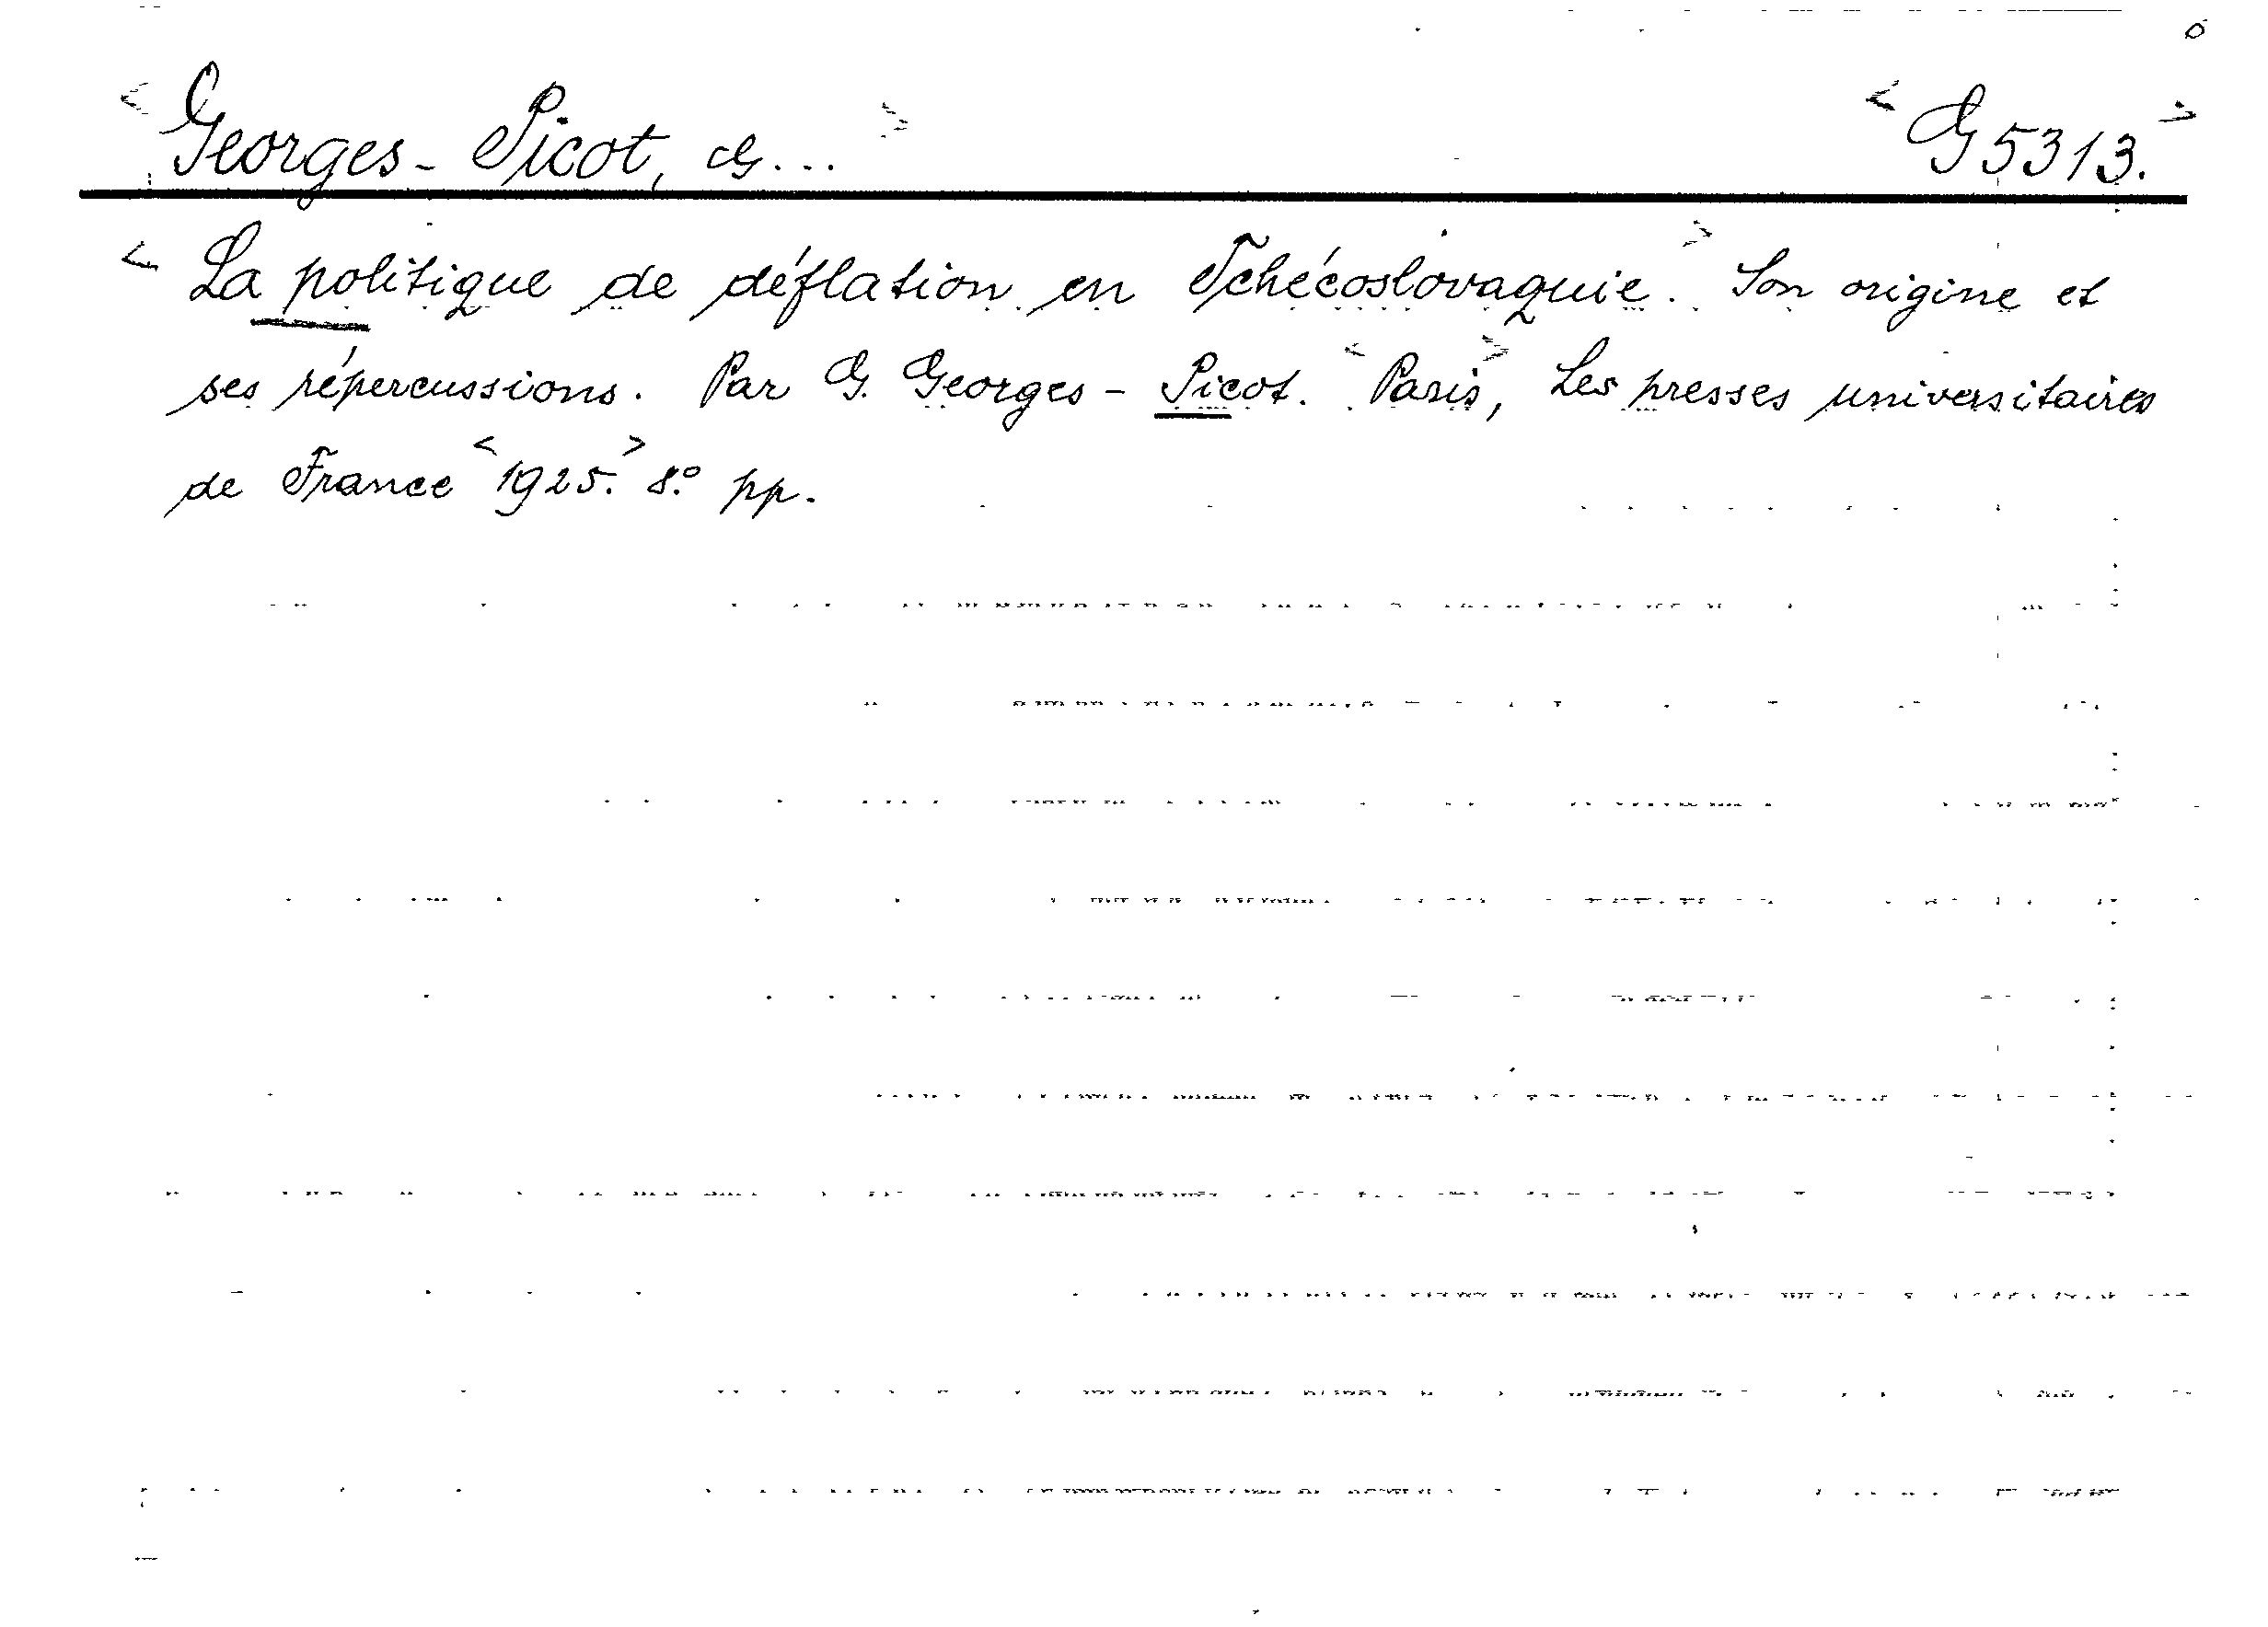 < Georges-Picot, G... > < G 5313. >
< La politique de déflation en Tchécoslovaquie. > Son origine et
ses répercussions. Par G. Georges-Picot. < Paris >, Les presses universitaires
de France < 1925. > 8.° pp.